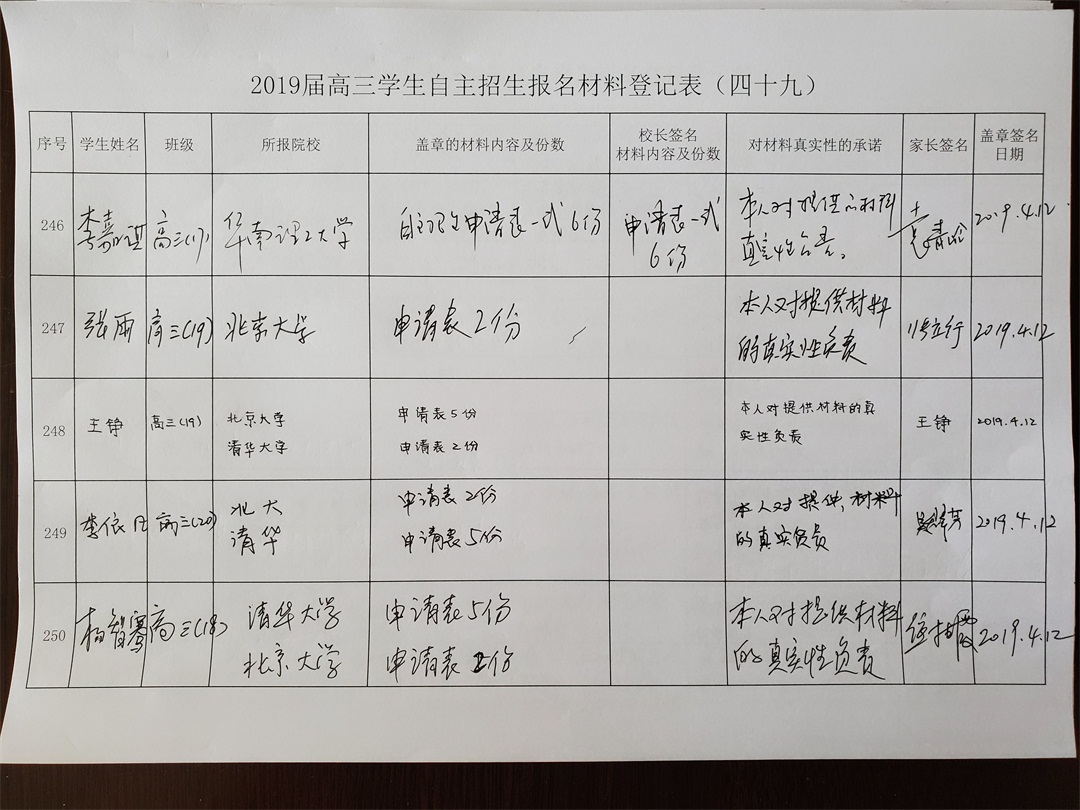 2019届高三学生自主招生报名材料登记表（四十九）
序号 学生姓名 班级 所报院校 盖章的材料内容及份数 校长签名 材料内容及份数 对材料真实性的承诺 家长签名 盖章签名 日期
246 李嘉琪 高三(17) 华南理工大学 自主招生申请表一式6份 申请表一式 6份 本人对提供的材料 真实性负责。 2019.4.12
247 张雨 高三(19) 北京大学 申请表2份 本人对提供材料 的真实性负责 2019.4.12
248 王铮 高三(19) 北京大学 清华大学 申请表5份 申请表2份 本人对提供材料的真 实性负责 王铮 2019.4.12
249 李依 高三(20) 北大 清华 申请表2份 申请表5份 本人对提供材料 的真实负责 2019.4.12
250 杨智骞 高三(18) 清华大学 北京大学 申请表5份 申请表2份 本人对提供材料 的真实性负责 2019.4.12